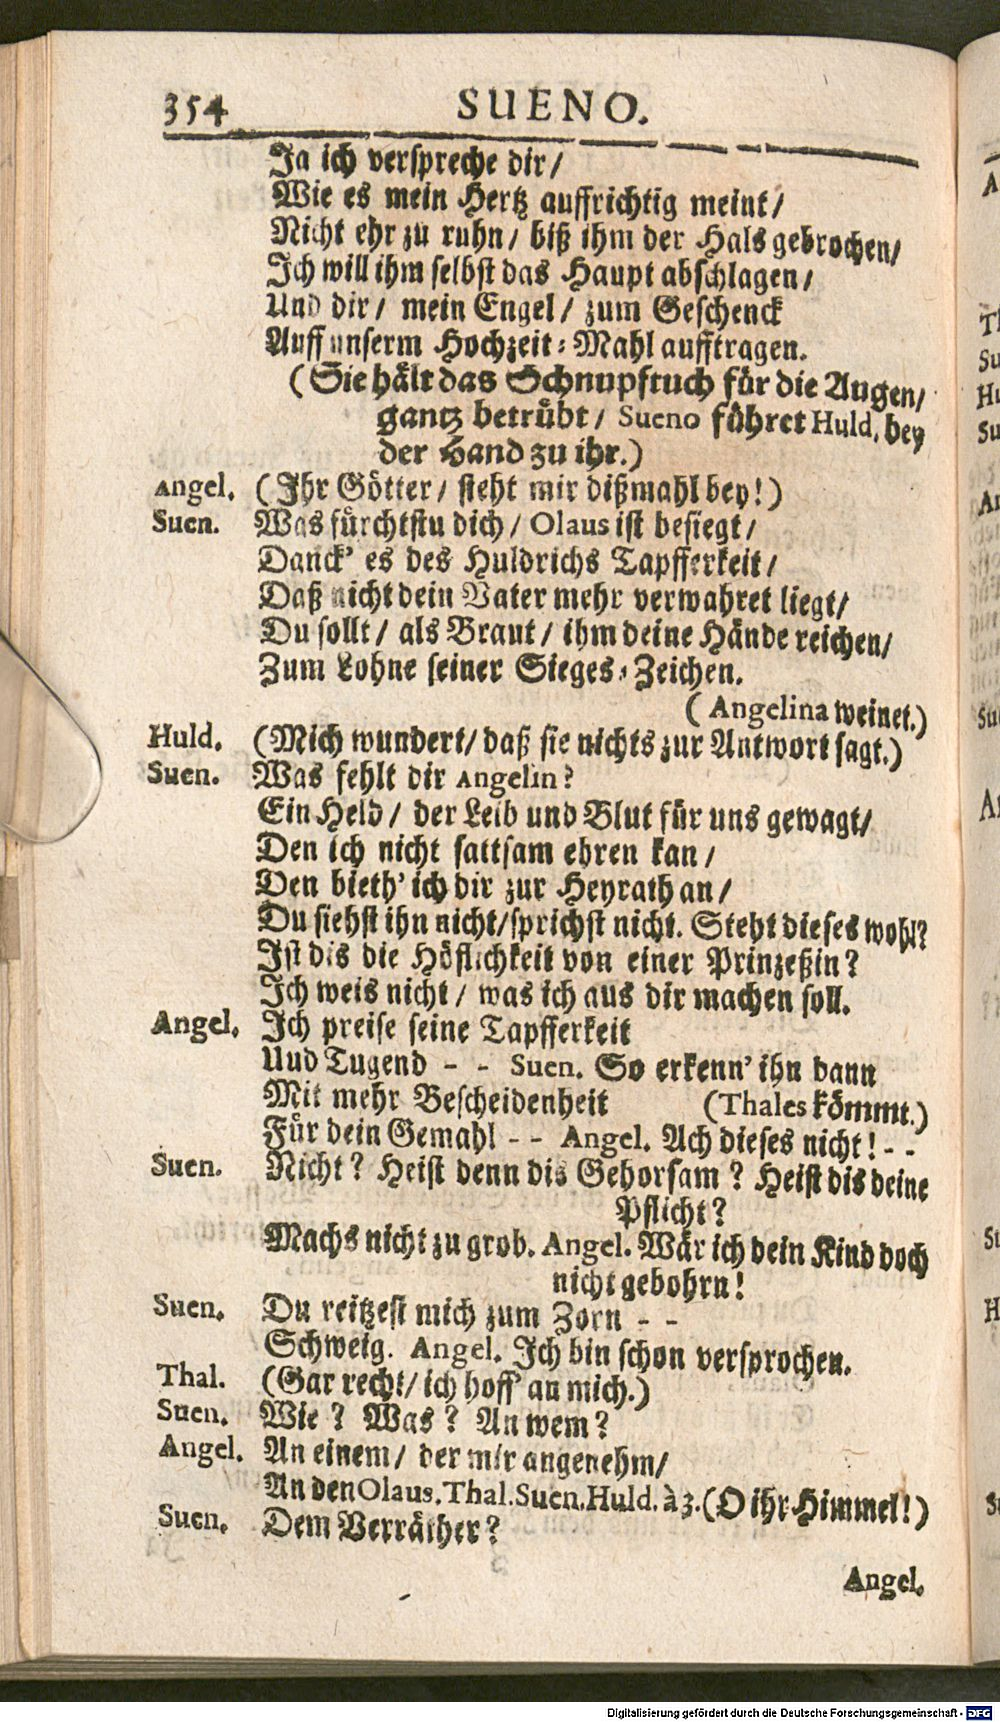 354 SUENO.
Ja ich verspreche dir/
Wie es mein Hertz auffrichtig meint/
Nicht ehr zu ruhn/ biß ihm der Hals gebrochen/
Ich will ihm selbst das Haupt abschlagen/
Und dir/ mein Engel/ zum Geschenck
Auff unserm Hochzeit-Mahl aufftragen.
(Sie hält das Schnupftuch für die Augen/
gantz betrübt/ Sueno führet Huld. bey
der Hand zu ihr.)
Angel. (Ihr Götter/ steht mir dißmahl bey!)
Suen. Was fürchtstu dich/ Olaus ist besiegt/
Danck' es des Huldrichs Tapfferkeit/
Daß nicht dein Vater mehr verwahret liegt/
Du sollt/ als Braut/ ihm deine Hände reichen/
Zum Lohne seiner Sieges-Zeichen.
(Angelina weinet.)
Huld. (Mich wundert/ daß sie nichts zur Antwort sagt.)
Suen. Was fehlt dir Angelin?
Ein Held/ der Leib und Blut für uns gewagt/
Den ich nicht sattsam ehren kan/
Den bieth' ich dir zur Heyrath an/
Du siehst ihn nicht/ sprichst nicht. Steht dieses wohl?
Ist dis die Höflichkeit von einer Prinzeßin?
Ich weis nicht/ was ich aus dir machen soll.
Angel. Ich preise seine Tapfferkeit
Uud Tugend - - Suen. So erkenn' ihn dann
Mit mehr Bescheidenheit (Thales kömmt.)
Für dein Gemahl - - Angel. Ach dieses nicht! - -
Suen. Nicht? Heist denn dis Gehorsam? Heist dis deine
Pflicht?
Machs nicht zu grob. Angel. Wär ich dein Kind doch
nicht gebohrn!
Suen. Du reitzest mich zum Zorn - -
Schweig. Angel. Ich bin schon versprochen.
Thal. (Gar recht/ ich hoff' an mich.)
Suen. Wie? Was? An wem?
Angel. An einem/ der mir angenehm/
An den Olaus. Thal. Suen. Huld. à 3. (O ihr Himmel!)
Suen. Dem Verräther?
Angel.
Digitalisierung gefördert durch die Deutsche Forschungsgemeinschaft - DFG